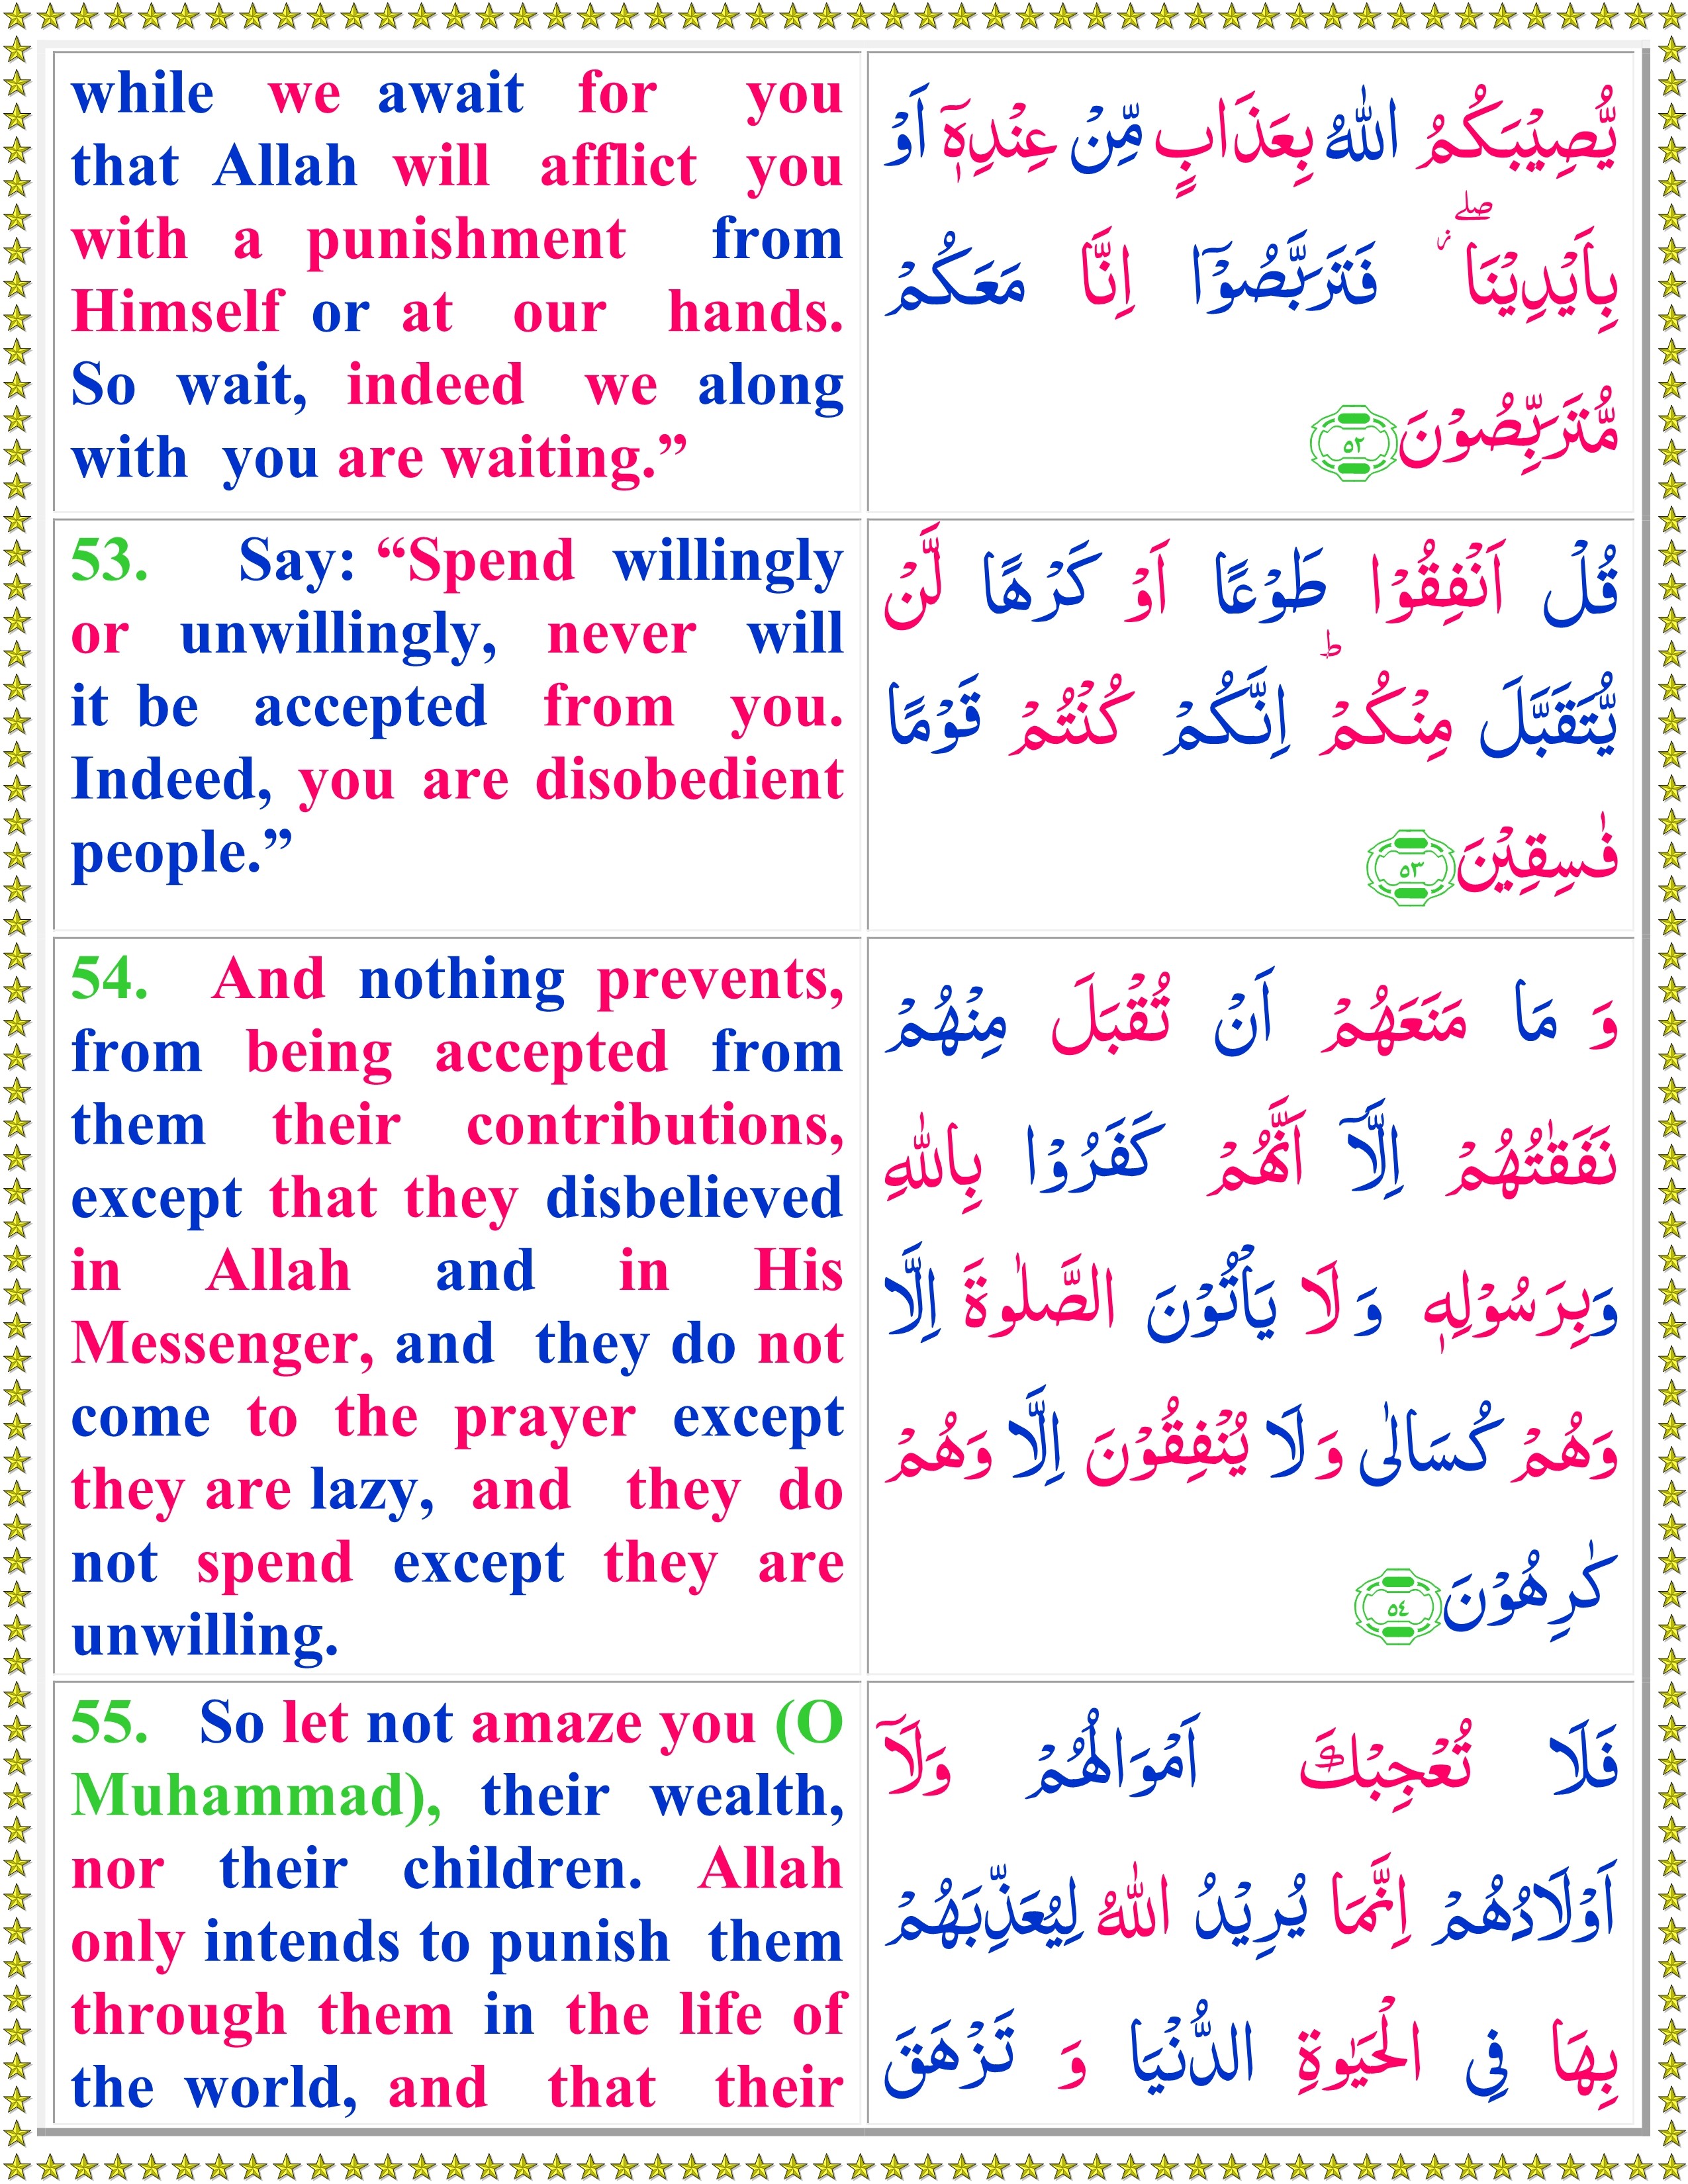 while we await for you
that Allah will afflict you
with a punishment from
Himself or at our hands.
So wait, indeed we along
with you are waiting.”
يُّصِيْبَكُمُ اللّٰهُ بِعَذَابٍ مِّنْ عِنْدِهٖٓ اَوْ
بِاَيْدِيْنَا ۖ ز فَتَرَبَّصُوْٓا اِنَّا مَعَكُمْ
مُّتَرَبِّصُوْنَ ٥٢
53. Say: “Spend willingly
or unwillingly, never will
it be accepted from you.
Indeed, you are disobedient
people.”
قُلْ اَنْفِقُوْا طَوْعًا اَوْ كَرْهًا لَّنْ
يُّتَقَبَّلَ مِنْكُمْ ؕ اِنَّكُمْ كُنْتُمْ قَوْمًا
فٰسِقِيْنَ ٥٣
54. And nothing prevents,
from being accepted from
them their contributions,
except that they disbelieved
in Allah and in His
Messenger, and they do not
come to the prayer except
they are lazy, and they do
not spend except they are
unwilling.
وَ مَا مَنَعَهُمْ اَنْ تُقْبَلَ مِنْهُمْ
نَفَقٰتُهُمْ اِلَّآ اَنَّهُمْ كَفَرُوْا بِاللّٰهِ
وَبِرَسُوْلِهٖ وَ لَا يَاْتُوْنَ الصَّلٰوةَ اِلَّا
وَهُمْ كُسَالٰى وَلَا يُنْفِقُوْنَ اِلَّا وَهُمْ
كٰرِهُوْنَ ٥٤
55. So let not amaze you (O
Muhammad), their wealth,
nor their children. Allah
only intends to punish them
through them in the life of
the world, and that their
فَلَا تُعْجِبْكَ اَمْوَالُهُمْ وَلَآ
اَوْلَادُهُمْ اِنَّمَا يُرِيْدُ اللّٰهُ لِيُعَذِّبَهُمْ
بِهَا فِى الْحَيٰوةِ الدُّنْيَا وَ تَزْهَقَ